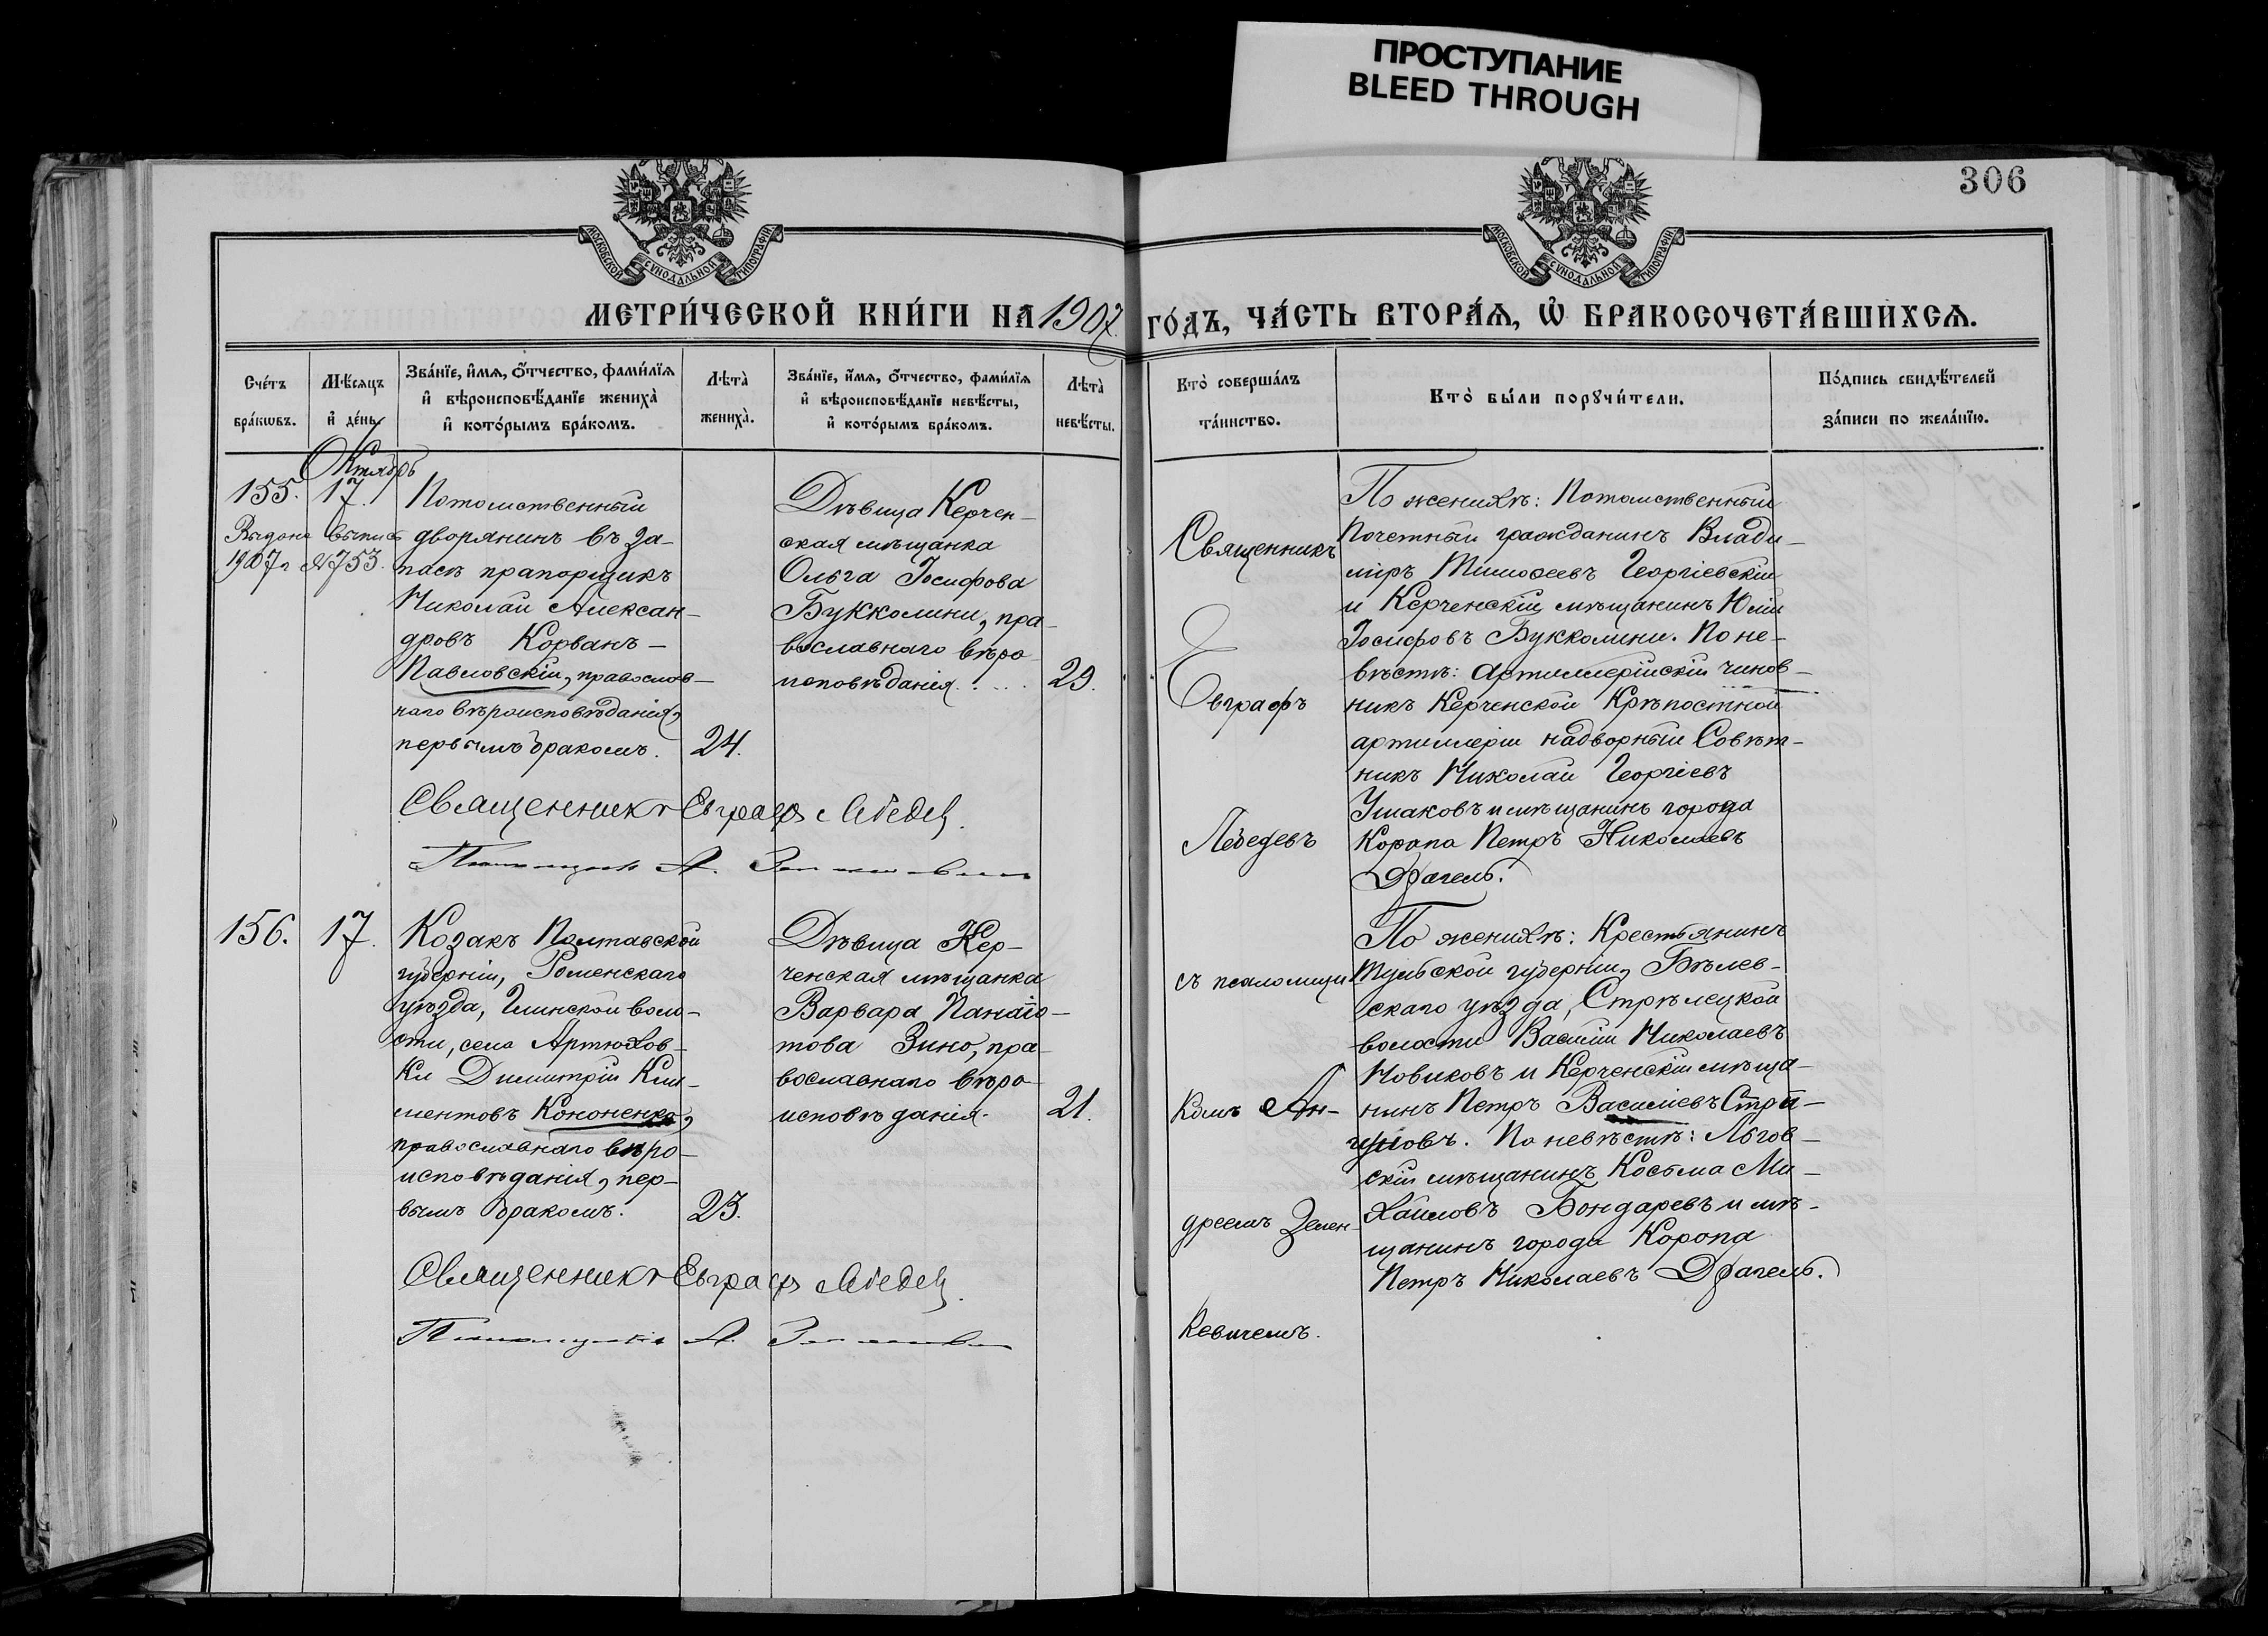 ПРОСТУПАНИЕ
BLEED THROUGH
306
МОСКОВСКОЙ СѴНОДАЛЬНОЙ ТИПОГРАФІИ
МОСКОВСКОЙ СѴНОДАЛЬНОЙ ТИПОГРАФІИ
МЕТРИ́ЧЕСКОЙ КНИ́ГИ НА 1907 ГО́ДЪ, ЧА́СТЬ ВТОРА́Я, Ѡ҆ БРАКОСОЧЕТА́ВШИХСЯ.
Сче́тъ
бра́кѡвъ.
Мѣ́сяцъ
и҆ де́нь.
Зва́нїе, и҆́мя, ѻ҆́тчество, фами́лїя
и҆ вѣроисповѣ́данїе жениха̀
и҆ кото́рымъ бра́комъ.
Лѣта̀
жениха̀.
Зва́нїе, и҆́мя, ѻ҆́тчество, фами́лїя
и҆ вѣроисповѣ́данїе невѣ́сты,
и҆ кото́рымъ бра́комъ.
Лѣта̀
невѣ́сты.
Кто̀ соверша́лъ
та́инство.
Кто̀ бы́ли порꙋчи́тели.
По́дпись свидѣ́телей
за́писи по жела́нїю.
Октябрь
155.
17.
Выдана выпись
1907 г. №753.
Потомственный
дворянинъ въ за-
пасѣ прапорщикъ
Николай Алексан-
дровъ Корванъ-
Павловскій, православ-
наго вѣроисповѣданія,
первымъ бракомъ.
24.
Дѣвица Керчен-
ская мѣщанка
Ольга Іосифова
Букколини, пра-
вославнаго вѣро
исповѣданія.
29.
Священникъ Евграфъ Лебедев
Псаломщик А.
Священникъ
Евграфъ
Лебедевъ
По женихѣ: Потомственный
Почетный гражданинъ Влади-
міръ Тимоѳеевъ Георгіевскій
и Керченскій мѣщанинъ Юлій
Іосифовъ Букколини. По не-
вѣстѣ: Артиллерійскій чинов-
никъ Керченской Крѣпостной
артиллеріи надворный Совѣт-
никъ Николай Георгіевъ
Ушаковъ и мѣщанинъ города
Коропа Петръ Николаевъ
Драгель.
156.
17.
Козакъ Полтавской
губерніи, Роменскаго
уѣзда, Глинской воло-
сти, села Артюхов-
ки Димитрій Кли-
ментовъ Кононенко,
православнаго вѣро-
исповѣданія, пер-
вымъ бракомъ.
23.
Дѣвица Кер-
ченская мѣщанка
Варвара Панаіо-
това Зино, пра-
вославнаго вѣро-
исповѣданія.
21.
Священникъ Евграфъ Лебедев
Псаломщикъ А.
съ псаломщи
комъ Ан-
дреемъ Зелен-
кевичемъ.
По женихѣ: Крестьянинъ
Тульской губерніи, Бѣлев-
скаго уѣзда, Стрѣлецкой
волости Василій Николаевъ
Новиковъ и Керченскій мѣща-
нинъ Петръ Василіевъ
По невѣстѣ: Льгов-
скій мѣщанинъ Косьма Ми-
хайловъ Бондаревъ и мѣ-
щанинъ города Коропа
Петръ Николаевъ Драгель.